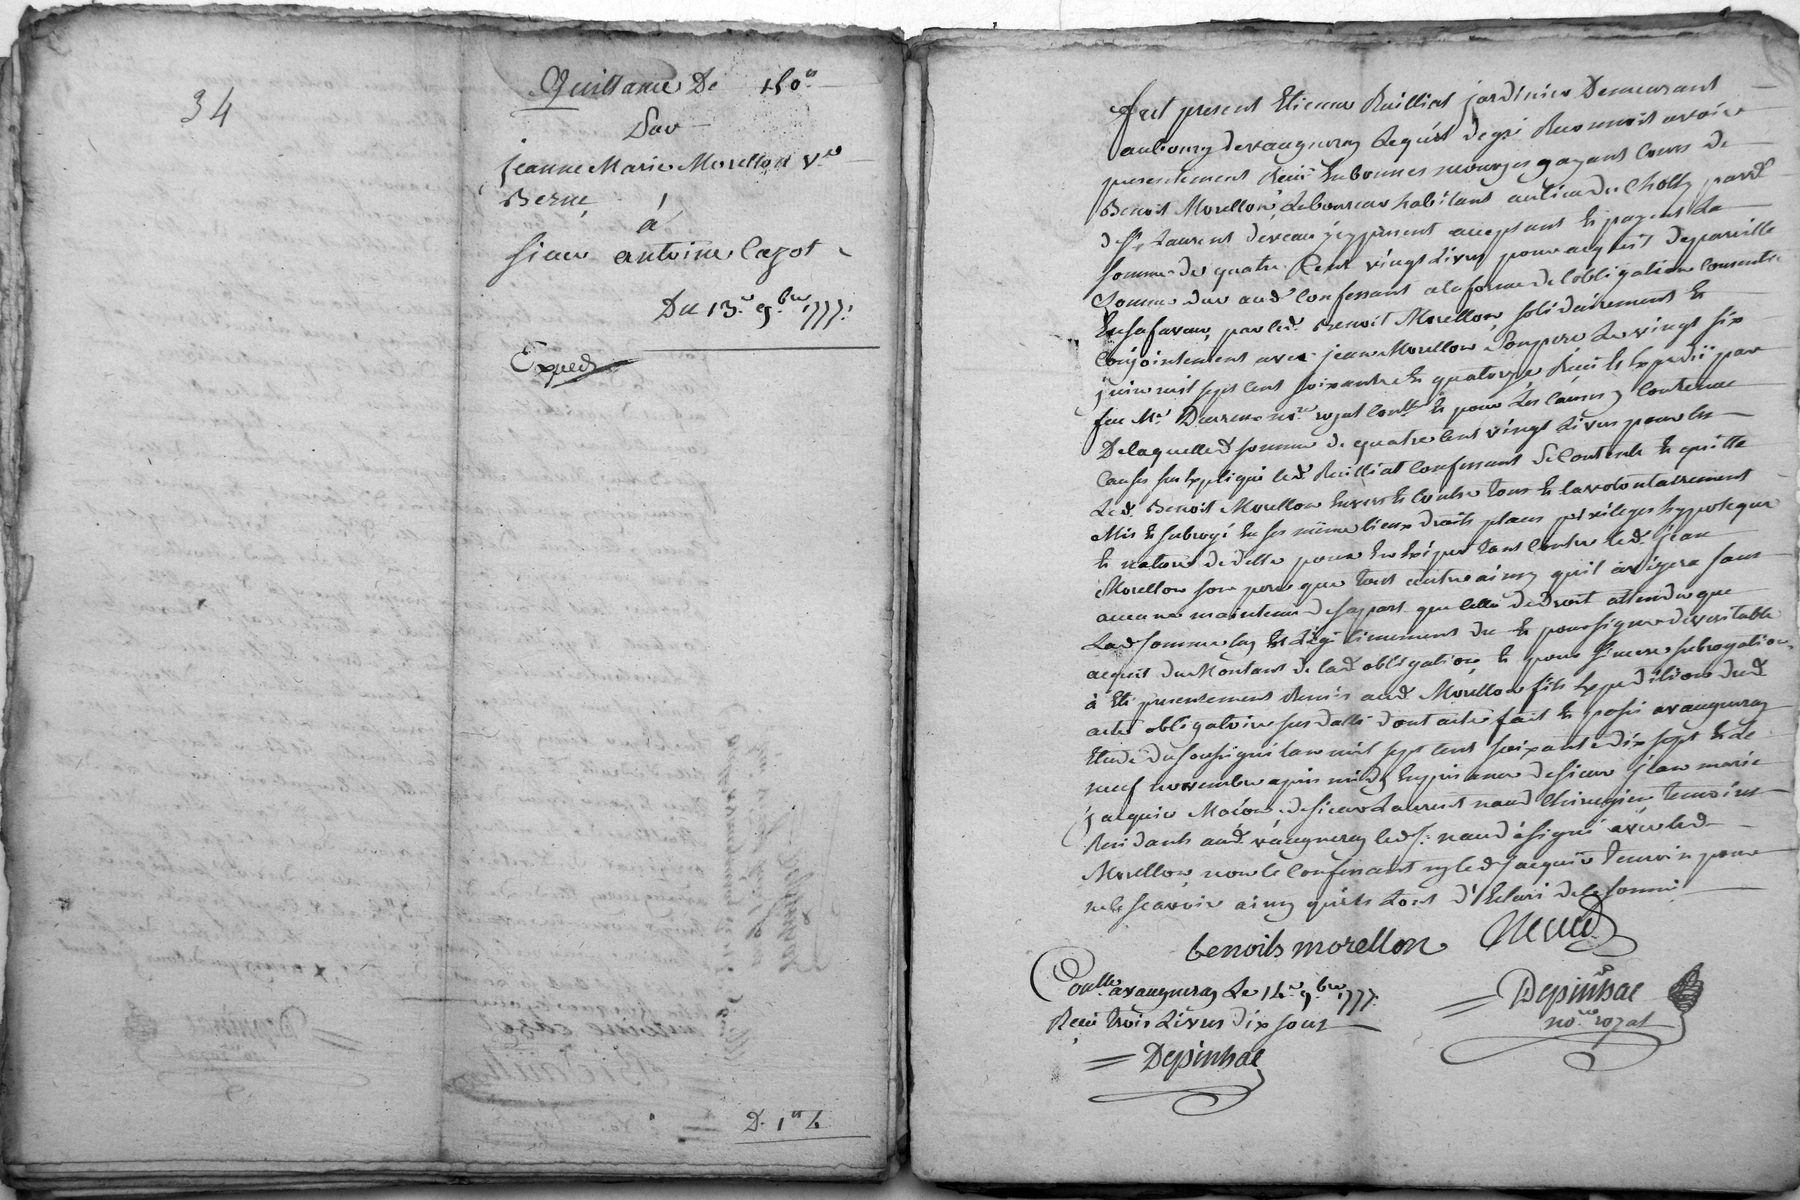 34
Quittance De 150ᵗᵗ
Par
jeanne Marie Morellon vᵉ
Berne
à
sieur antoine Cazot
Du 13ᵉ 9ᵇʳᵉ 1777.
Exped
D. 1ᵗᵗ
fut present Etienne Railliat jardinier Demeurant
aubourg devaugneray Lequel degré Reconnoit avoir
presentement Reçu En bonnes monoyes ayant Cours de
Benoit Morellon Laboureur habitant aulieu du Cholly parr.
de St. Laurent devaux jcy présent acceptant Et payant La
somme de quatre Cent vingt Livres pour acquit depareille
somme due aud. Confessant alaforme de l'obligation Consentie
Ensafaveur par led. Benoit Morellon solidairement Et
Conjointement avec jean Morellon son pere Le vingt six
juin mil sept Cent soixante Et quatorze Reçu Et Expedié par
feu Me. nore. royal Et pour Les Causes y Contenue
Delaquelle d. somme de quatre Cent vingt Livres pour Les
Causes sus Expliqué led. Railliat Confessant se Contente Et quitte
Led. Benoit Morellon Envers Et Contre tous Et la volontairement
Mis Et subrogé En ses même lieux droits places privileges hypoteque
Et nature de dette pour En Exiger tant Contre led. jean
Morellon son pere que tout autre ainsy quil avisera sans
aucune maintenue desapart que Celle dedroit attendu que
Lad. somme luy Est Légitimement due Et pour signe de veritable
acquit du Montant de lad. obligation Et pour sincere subrogation
à Eté presentement Remis aud. Morellon fils Expedition dud.
acte obligatoire sus datté dont acte fait Et passé avaugneray
Etude du soussigné Lan mil sept Cent soixante dix sept Et Le
neuf novembre apres midy En presence desieur jean marie
jacquier Maçon desieur Laurent naud Chirurgien temoins
Residants aud. vaugneray led. s. naud à signé avec led.
Morellon non le Confessant ny led. jacquier temoin pour
ne le scavoir ainsy quils L'ont déclaré de ce sommé
benoits morellon Naud
Conllé avaugneray Le 14ᵉ 9ᵇʳᵉ 1777.
Reçu trois Livres dix sous
Depinhac
Depinhac
noʳᵉ royal